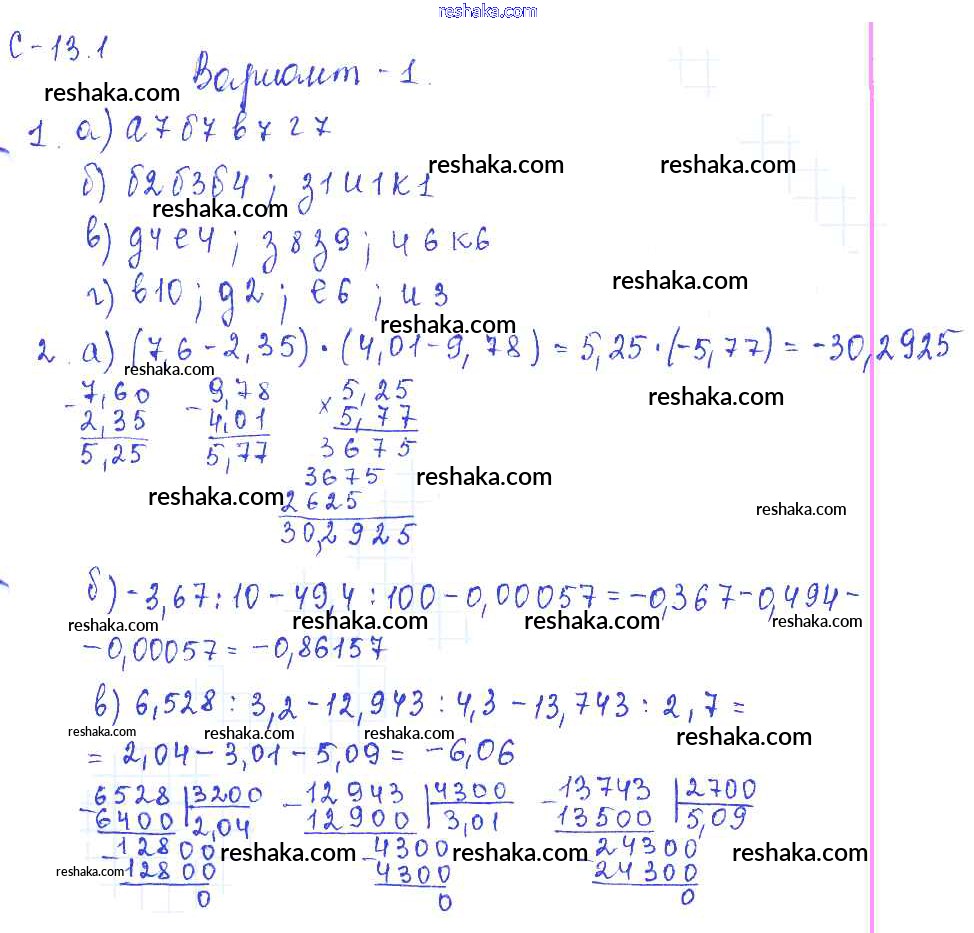 reshaka.com
С-13.1
Вариант-1.
reshaka.com
1. а) а7 б7 в7 г7
reshaka.com reshaka.com
б) б2 б3 б4; з1 и1 к1
reshaka.com
в) д4 е4; з8 з9; и6 к6
reshaka.com
г) в10; д2; е6; и3
reshaka.com
2. а) (7,6-2,35)·(4,01-9,78) = 5,25·(-5,77) = -30,2925
reshaka.com
-7,60 -9,78 ×5,25
reshaka.com
2,35 4,01 5,77
5,25 5,77 3675
3675
reshaka.com
reshaka.com
2625
reshaka.com
30,2925
б) -3,67:10-49,4:100-0,00057=-0,367-0,494-
reshaka.com reshaka.com reshaka.com reshaka.com
-0,00057=-0,86157
в) 6,528:3,2-12,943:4,3-13,743:2,7=
reshaka.com reshaka.com reshaka.com reshaka.com
= 2,04-3,01-5,09 = -6,06
-6528 3200 -12943 4300 -13743 2700
6400 2,04 12900 3,01 13500 5,09
-12800 -4300 -24300
reshaka.com reshaka.com reshaka.com
12800 4300 24300
reshaka.com
0 0 0